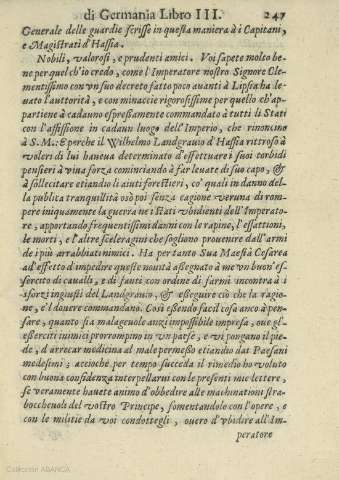 di Germania Libro III. 247
Generale delle guardie scrisse in questa maniera à i Capitani,
e Magistrati d'Hassia.
Nobili, valorosi, e prudenti amici. Voi sapete molto be-
ne per quel ch'io credo, come l'Imperatore nostro Signore Cle-
mentissimo con vn suo decreto fatto poco auanti à Lipsia ha le-
uato l'autorità, e con minaccie rigorosissime per quello ch'ap-
partiene à cadauno espressamente commandato à tutti li Stati
con l'affissione in cadaun luogo dell'Imperio, che rinoncino
à S.M.: E perche il Wilhelmo Landgrauio d'Hassia rittroso à
voleri di lui haueua determinato d'effettuare i suoi torbidi
pensieri à viua forza cominciando à far leuate di suo capo, &
à sollecitare etiandio li aiuti forestieri, co' quali in danno del-
la publica tranquillità osò poi senza cagione veruna di rom-
pere iniquamente la guerra ne i Stati vbidienti dell'Imperato-
re, apportando frequentissimi danni con le rapine, l'essattioni,
le morti, e l'altre sceleragini che sogliono prouenire dall'armi
de i più arrabbiati nimici. Ha per tanto Sua Maestà Cesarea
ad effetto d'impedire queste nouità assegnato à me vn buon' es-
sercito di caualli, e di fanti con ordine di farmi incontra à i
sforzi ingiusti del Landgrauio, & esseguire ciò che la ragio-
ne, e'l douere commandano. Così essendo facil cosa anco à pen-
sare, quanto sia malageuole anzi impossibile impresa, oue gl'
esserciti inimici prorrompino in vn paese, e vi pongano il pie-
de, d'arrecar medicina al male permesso etiandio dai Paesani
medesimi; accioche per tempo succeda il rimedio hò voluto
con buona confidenza interpellarui con le presenti mie lettere,
se veramente hauete animo d'obbedire alle machinationi stra-
bocheuoli del vostro Principe, fomentandolo con l'opere, e
con le militie da voi condottegli, ouero d'vbidire all'Im-
peratore
Colección ABANCA